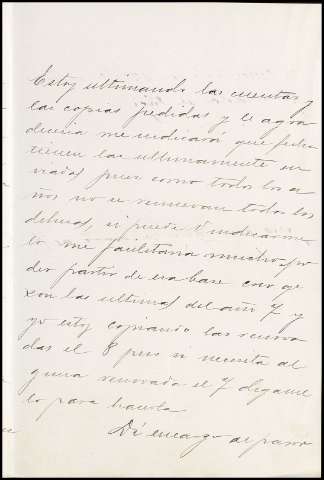 Estoy ultimando las cuentas y
las copias pedidas y le agra
deceria me indicará que fecha
tienen las ultimamente en
viadas pues como todos los a
ños no se renuevan todos los
deberes, si puede V. indicarme
lo me facilitaria mucho, po
der partir de esa base creo que
son las ultimas del año 7 y
yo estoy copiando las renova
das el 8 pues si necesita al
guna renovada el 7 digame
lo para hacerla
Dí encargo de pasar